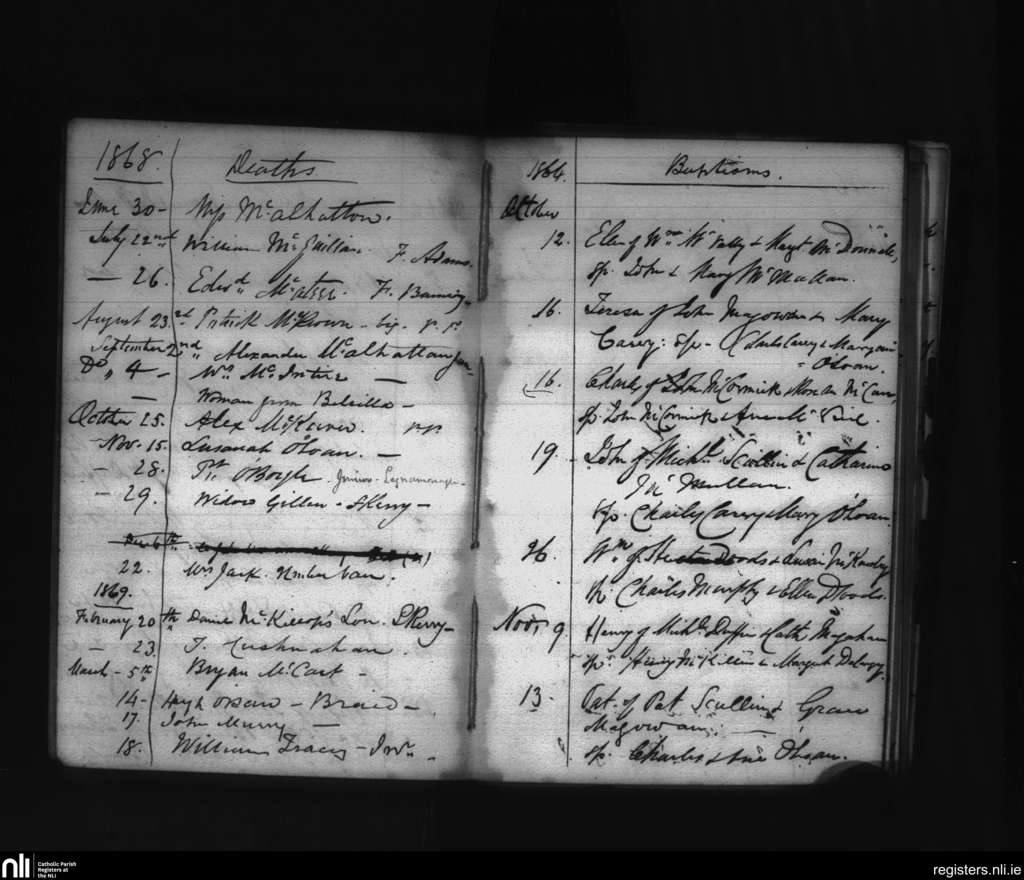 1868. Deaths
June 30 - Miss McAlhatton.
July 22nd William McQuillan. F. Adams.
— 26. Edwd McAteer. F.
August 23rd Patrick McKeown -
September 2nd Alexander McAlhattan
Do 4 - Wm McIntire —
— Woman from
October 25. Alex McKeever. P.P.
Nov. 15. Susanah O'Loan. —
- 28. Pk O'Boyle.
- 29. Widow Gillen - Skerry -
22. Mrs Jack.
1869.
February 20th Daniel McKillop's Son. Skerry -
- 23. J. Cushnahan.
March - 5th Bryan McCart -
14 - Hugh - Braid -
17. John Murry —
18. William Tracy -
1864. Baptisms.
October
12. Ellen of Wm McNally & Margt McDonnell,
sp. John & Mary McMullan.
16. Teresa of John Magowan & Mary
Carey: sp - Charles Carey & Margaret
O'Loan.
16. Charles of John McCormick & McCann,
sp. John McCormick &
19. John of Michl Scullin & Catharine
McMullan.
sp. Charles Carey & Mary O'Loan.
26. Wm of Woods & Susan
sp. Charles Murphy & Ellen Woods.
Novr 9 Henry of Michl Duffin & Cath Magahan
sp. Henry McKillin & Margaret Delargy.
13. Pat. of Pat Scullin & Grace
Magowan: —
sp. Charles & O'Loan.
nli Catholic Parish
Registers at
the NLI
registers.nli.ie